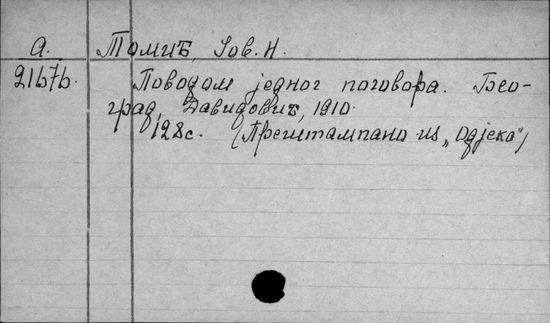 А. Томић, Јов. Н.
21676. Поводом једног поговора. Бео-
град, Давидовић, 1910.
128с. (Прештампано из „Одјека")